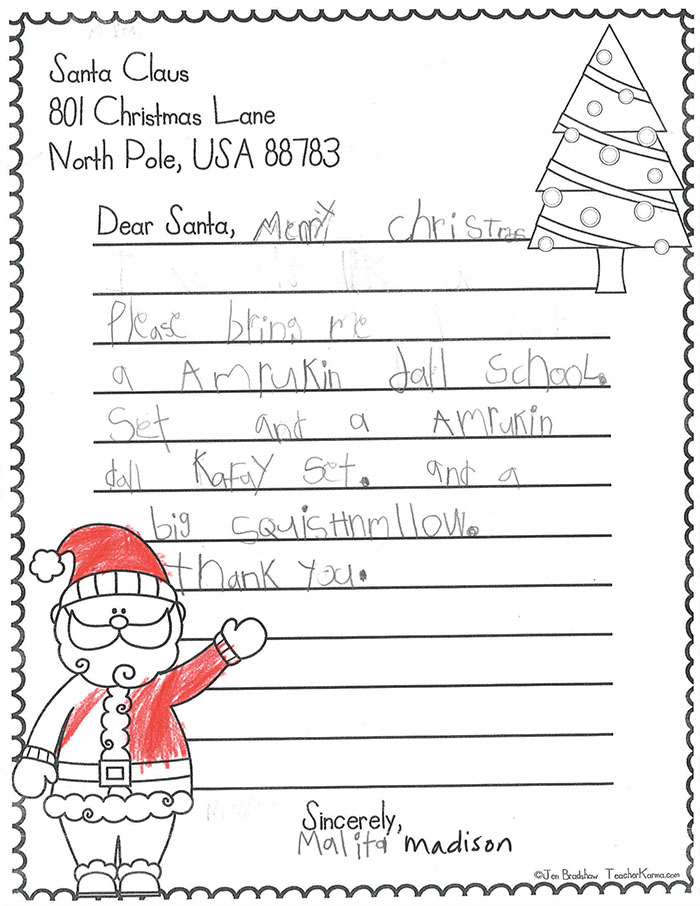 Santa Claus
801 Christmas Lane
North Pole, USA 88783
Dear Santa, Merry christmas
Please bring me
a Amrukin dall School.
Set and a Amrukin
dall Kafay Set. and a
big squishmllow.
thank you.
Sincerely,
Malita madison
©Jen Bradshaw TeacherKarma.com